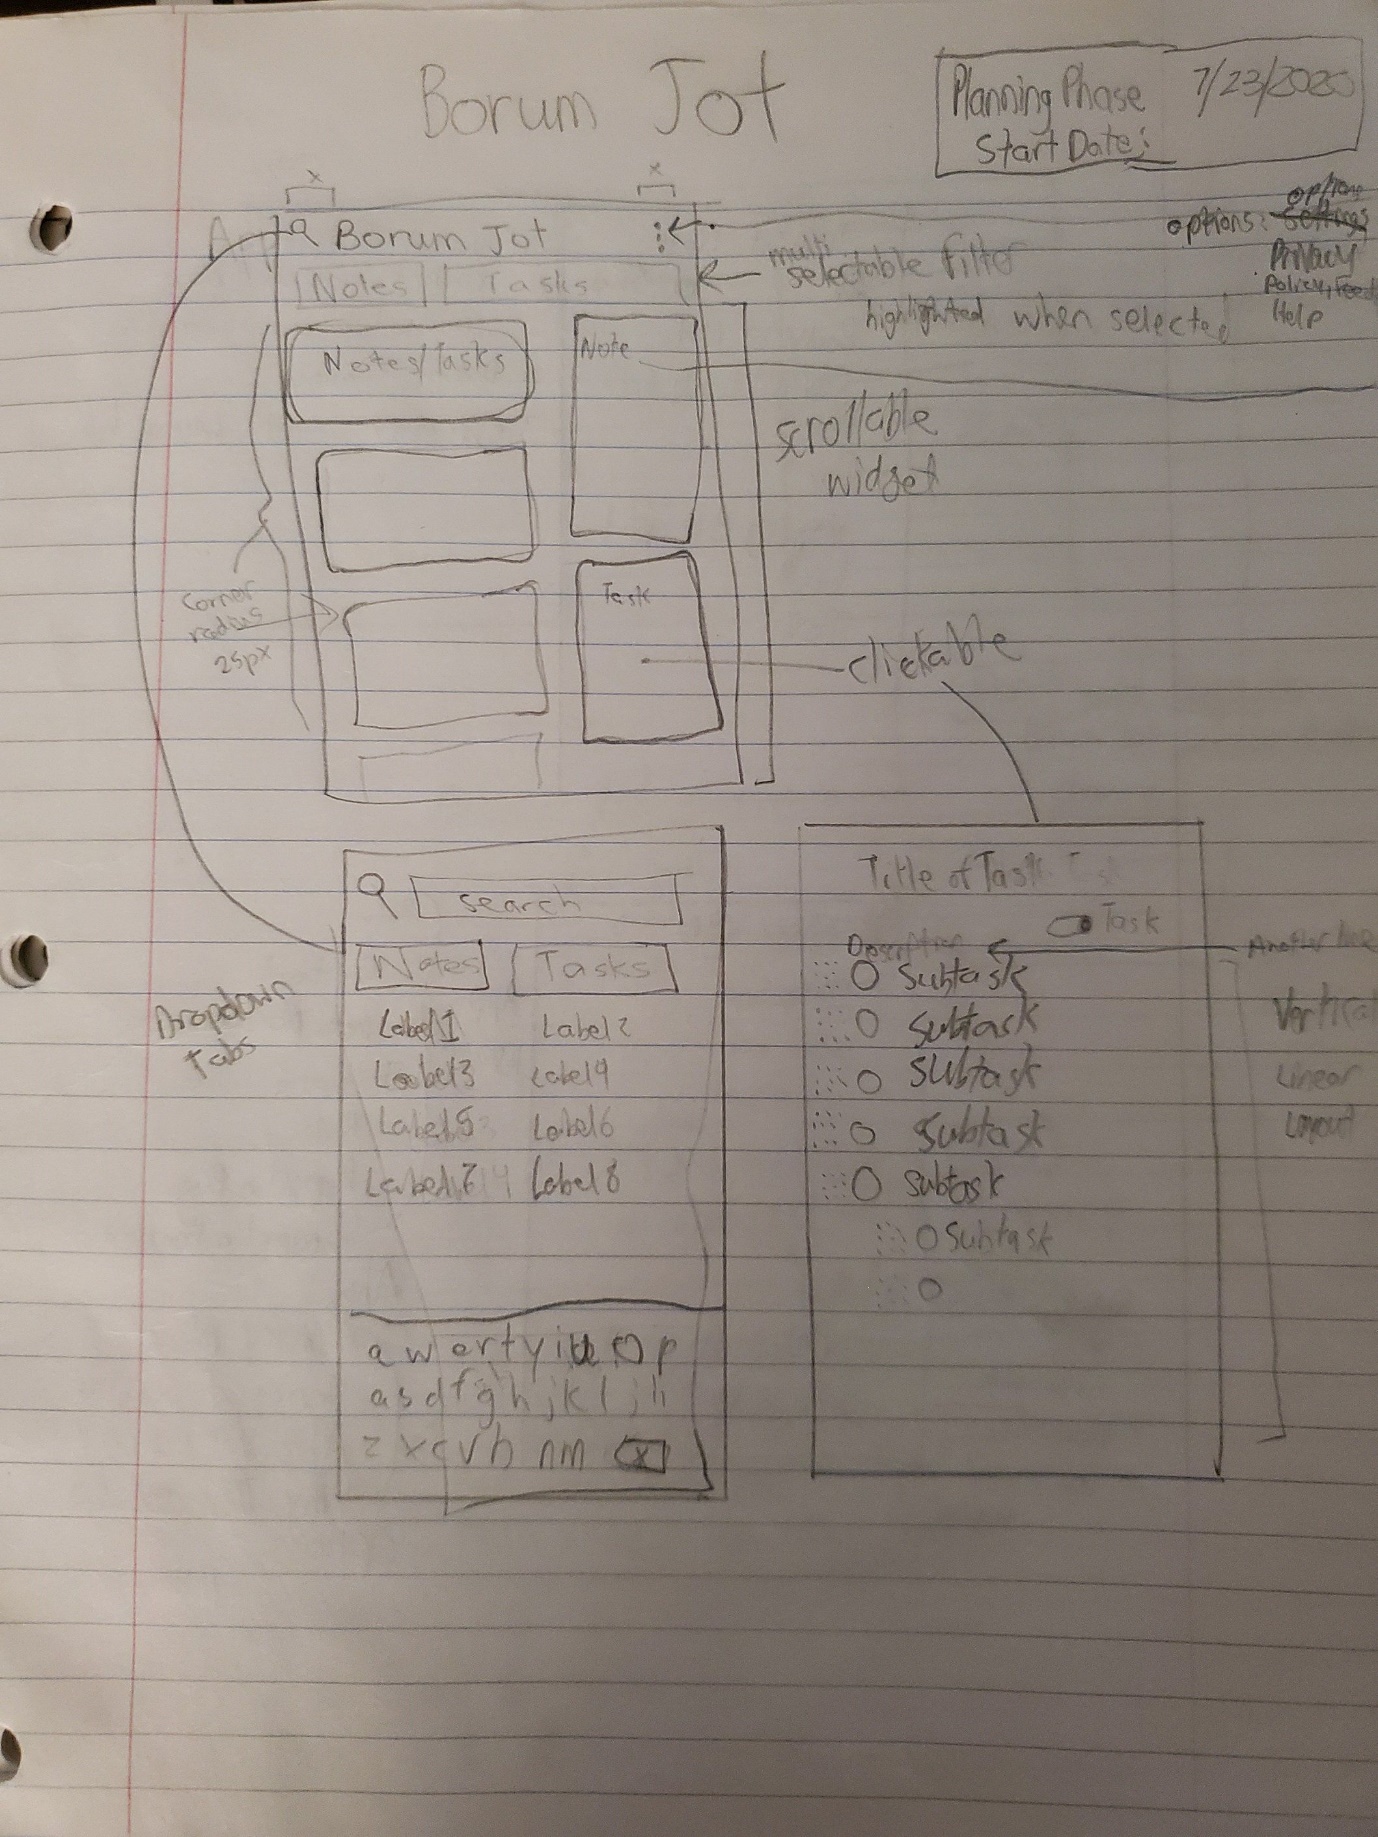 Borum Jot
Planning Phase 7/23/2020
Start Date:
x x
Borum Jot
options: options
Settings
Privacy
Policy, Feed
Help
multi
selectable filter
highlighted when selected
Notes Tasks
Notes/Tasks
Note
scrollable
widget
Corner
radius
25px
Task
clickable
search
Notes Tasks
Label1 Label2
Label3 Label4
Label5 Label6
Label7 Label8
Dropdown
Tabs
qwertyiuop
asdfghjkl;
zxcvbnm x
Title of Task
Task
Description
Subtask
Subtask
Subtask
Subtask
Subtask
Subtask
Vertical
Linear
Layout